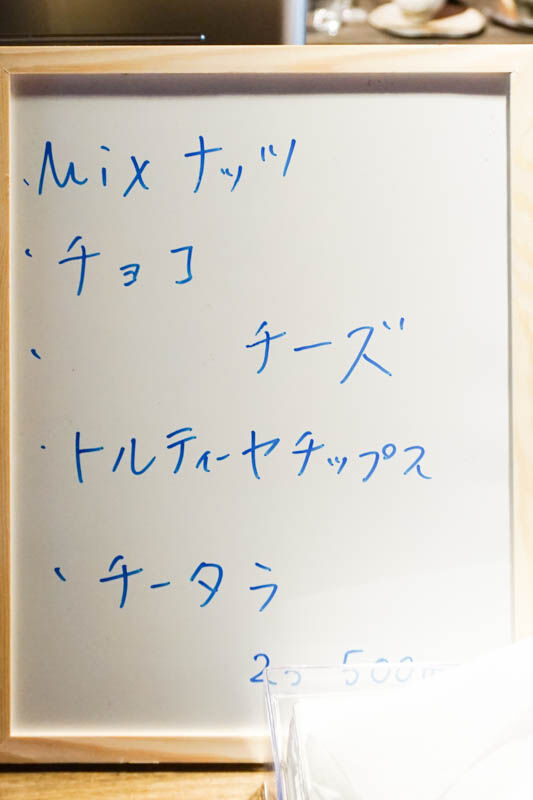 ・Mixナッツ
・チョコ
・ チーズ
・トルティーヤチップス
・チータラ
2つ 500